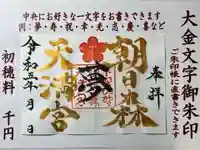 中央にお好きな一文字をお書きできます
例:夢・寿・祝・幸・光・志・慶・喜など
大金文字御朱印
ご朱印帳に直書きできます
奉拝
朝日森
夢
天満宮
令和五年 月 日
初穂料 千円